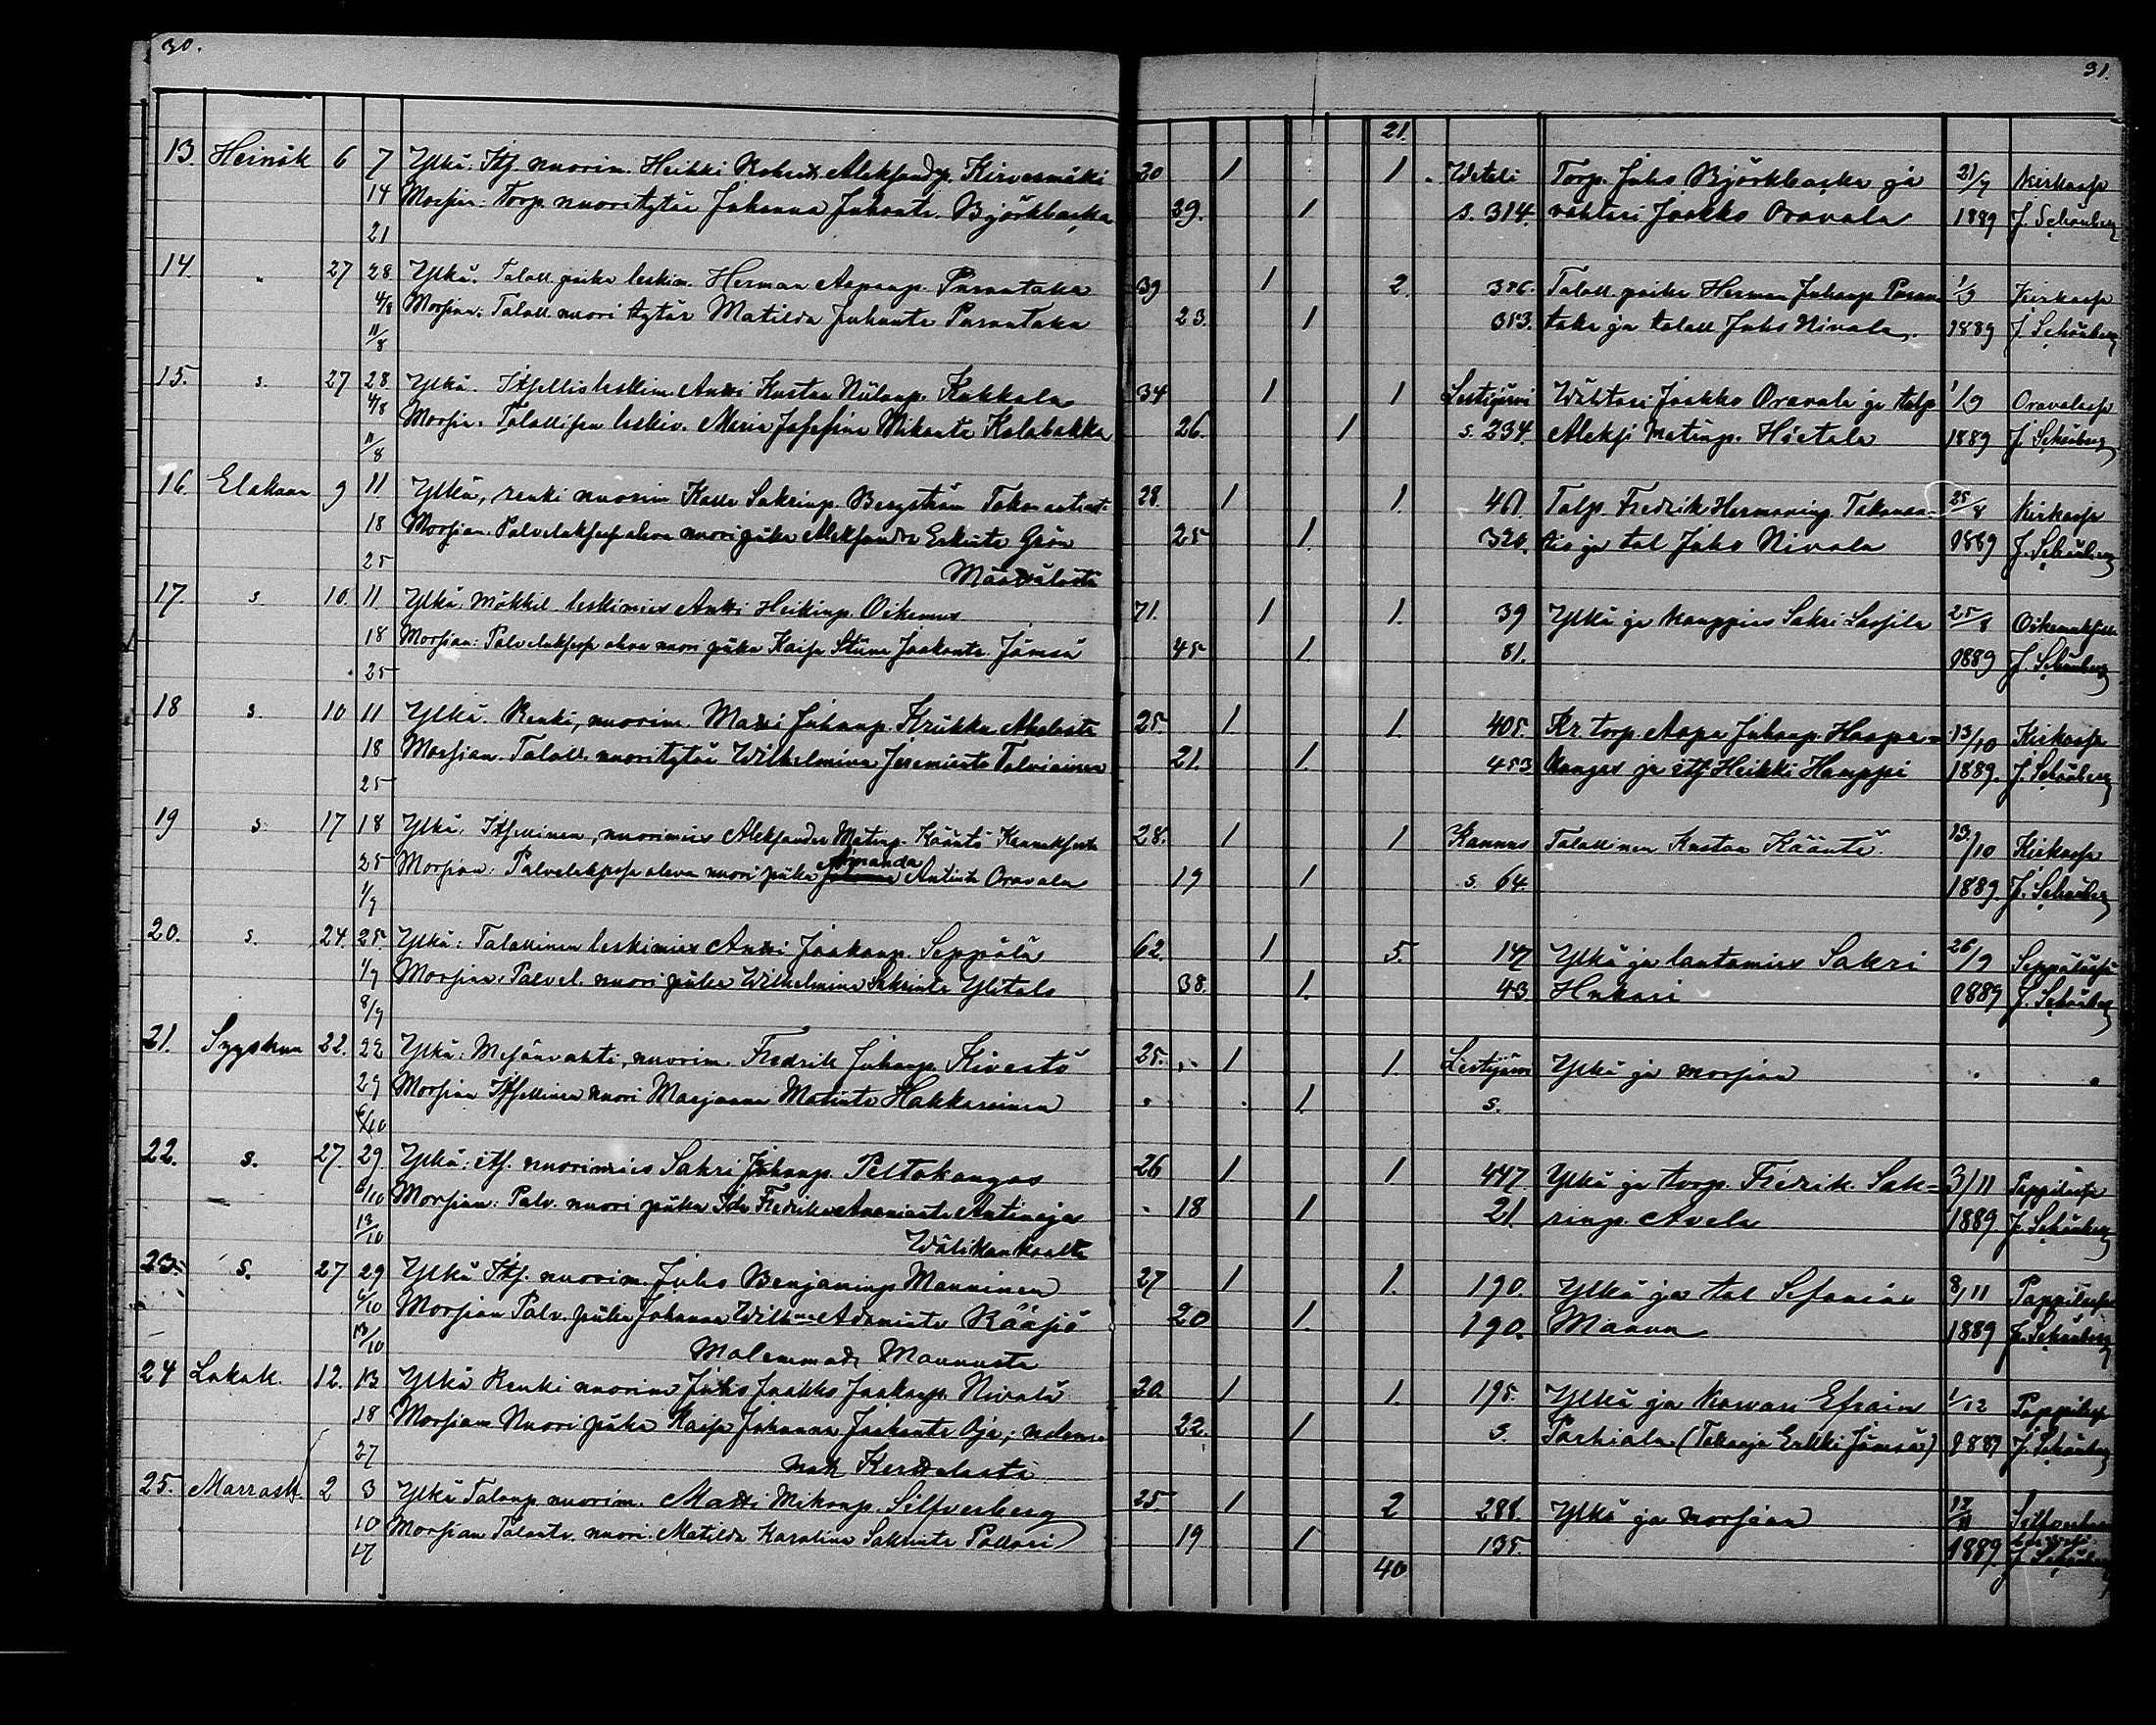 30. 31.
21.
13. Heinäk 6 7 Ylkä: Itf. nuorim. Heikki Aleksand.p. Kirvesmäki 20 1 1 Weteli Torp. Juho Björkbacka ja 21/7 Kirkossa
14 Morsian: Torp. nuori tytär Johanna Juhontr. Björkbacka 29. 1 s. 314. vahtari Jaakko Oravala 1889 J. Schönberg
21
14. " 27 28 Ylkä. Taloll. poika leskim. Herman Aaponp. Puruntaka 39 1 2. 386. Taloll. poika Herman Juhonp. Purun- 1/9 Kirkossa
4/8 Morsian: Taloll. nuori tytär Matilda Juhontr Puruntaka 23. 1 313. taka ja taloll Juho Nivala. 1889 J. Schönberg
11/8
15. s. 27 28 Ylkä. Itsellis leskim. Antti Kustaa Niilonp. Kukkola 34 1 1 Lestijärvi Wahtari Jaakko Oravala ja talp 1/9 Oravalassa
4/8 Morsia. Talollisen leskiv. Maria Josefina Mikontr Kalabakka 26. 1 s. 234. Aleksi Matinp. Hietala 1889 J. Schönberg
11/8
16. Elokuu 9 11 Ylkä, renki nuorim Kalle Sakrinp. Bergström 28. 1 1. 461. Talp. Fredrik Hermaninp. 25/8 Kirkossa
18 Morsian. Palveluksessa oleva nuori piika Aleksandra Erkintr Grön 25 1. 320. tio ja tal Juho Nivala 1889 J. Schönberg
25 Määttälästä
17. s. 10. 11 Ylkä: Mökkil. leskimies Antti Heikinp. Oikemus 71. 1 1. 39 Ylkä ja kauppias Sakri Sassila 25/8
18 Morsian: Palveluksessa oleva nuori piika Kaisa Stiina Jaakontr. Jämsä 45 1. 81. 1889 J. Schönberg
25
18 s. 10 11 Ylkä. Renki, nuorim. Matti Juhonp. Krükka Aholasta 25. 1 1. 405. Kr torp. Aapo Juhonp. Haapa- 13/10 Kirkossa
18 Morsian. Taloll. nuori tytär Wilhelmina Jeremiantr Talviainen 21. 1. 453 kangas ja itf Heikki Hamppi 1889. J. Schönberg
25
19 s. 17 18 Ylkä: Itsellinen, nuorimies Aleksander Matinp. Kääntä Kannuksesta 28. 1 1 Kannus Talollinen Kustaa Kääntä. 13/10 Kirkossa
25 Morsian: Palveluksessa oleva nuori piika Amanda Antintr Oravala 19 1 s. 64 1889. J. Schönberg
1/9
20. s. 24. 25. Ylkä: Talollinen leskimies Antti Jaakonp. Seppälä 62. 1 5. 147 Ylkä ja lautamies Sakri 26/9 Seppälässä
1/9 Morsian: Palvel. nuori piika Wilhelmina Sakrintr Ylitalo 38. 1. 43 Hukari 1889 J. Schönberg
8/9
21. Syyskuu 22. 22 Ylkä: Mesänvahti, nuorim. Fredrik Juhonp. Kivestö 25. 1 1. Lestijärvi Ylkä ja morsian
29 Morsian Itsellinen nuori Marjaana Matintr Hakkarainen 1. s.
6/10
22. s. 27. 29. Ylkä: itf. nuorimies Sakri Juhonp. Peltokangas 26 1 1 447 Ylkä ja torp. Fredrik. Sak- 3/11 Pappilassa
6/10 Morsian: Palv. nuori piika Ida Fredrika Ananiantr Antinoja 18 1 21. rinp. Avela 1889 J. Schönberg
13/10 Wälikankaalta
23. s. 27 29 Ylkä Itf. nuorim. Juho Benjaminp Manninen 27 1 1. 190. Ylkä ja tal Sefanias 8/11 Pappilassa
6/10 Morsian Palv. piika Johanna Wilhna Adamintr Rääsiö 20 1. 190. Maunu 1889 J. Schönberg
13/10 Molemmat Maunusta
24 Lokak. 12. 13 Ylkä Renki nuorim Juho Jaakko Jaakonp. Nivala 20 1 1. 195. Ylkä ja karvari Efraim 1/12 Pappilassa
18 Morsian Nuori piika Kaisa Johanna Jaakontr Oja; molem- 22. 1 s. Parhiala (Talonoja Erkki Jämsä) 1889 J. Schönberg
27 mat Kerttulasta
25. Marrask. 2 3 Ylkä Talonp nuorim. Matti Mikonp. Silfverberg 25 1 2 288. Ylkä ja morsian
10 Morsian Talontr. nuori. Matilda Karolina Sakrintr Pollari 19 1 135. 1889 J. Schönberg
17 40